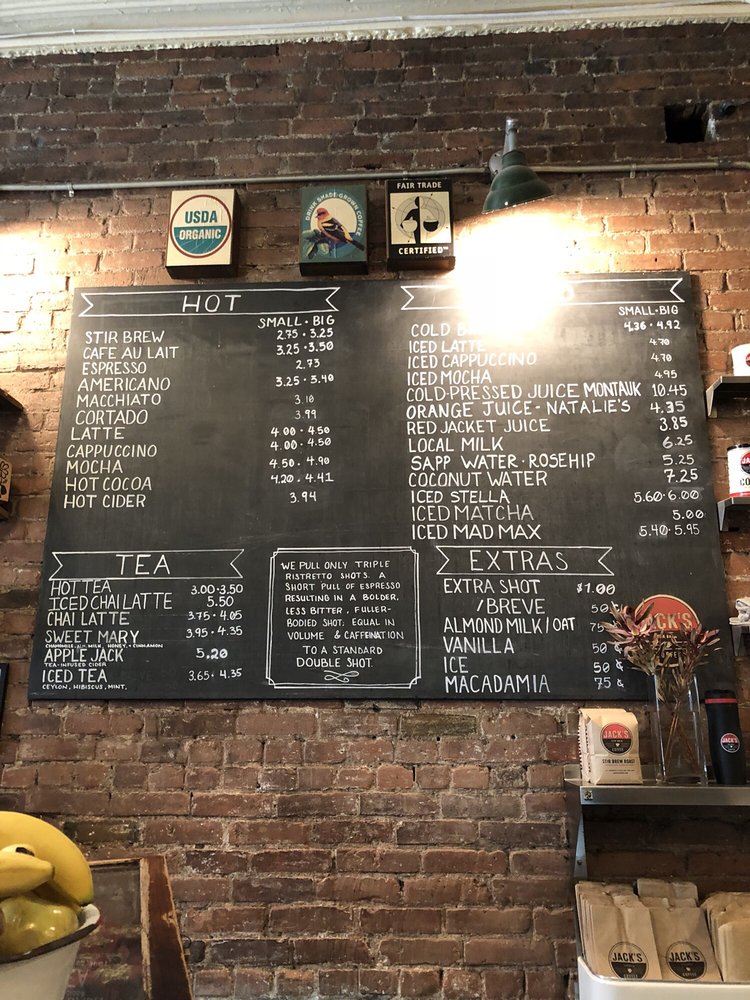 USDA
ORGANIC
DRINK SHADE-GROWN COFFEE
FAIR TRADE
CERTIFIED™
HOT
SMALL · BIG
STIR BREW 2.75 · 3.25
CAFE AU LAIT 3.25 · 3.50
ESPRESSO 2.73
AMERICANO 3.25 · 3.40
MACCHIATO 3.18
CORTADO 3.99
LATTE 4.00 · 4.50
CAPPUCCINO 4.00 · 4.50
MOCHA 4.50 · 4.90
HOT COCOA 4.20 · 4.41
HOT CIDER 3.94
SMALL · BIG
COLD 4.36 · 4.92
ICED LATTE 4.70
ICED CAPPUCCINO 4.70
ICED MOCHA 4.95
COLD-PRESSED JUICE MONTAUK 10.45
ORANGE JUICE - NATALIE'S 4.35
RED JACKET JUICE 3.85
LOCAL MILK 6.25
SAPP WATER · ROSEHIP 5.25
COCONUT WATER 7.25
ICED STELLA 5.60 · 6.00
ICED MATCHA 5.00
ICED MAD MAX 5.40 · 5.95
TEA
HOT TEA 3.00 · 3.50
ICED CHAI LATTE 5.50
CHAI LATTE 3.75 · 4.05
SWEET MARY 3.95 · 4.35
CHAMOMILE, ALM. MILK, HONEY, + CINNAMON
APPLE JACK 5.20
TEA-INFUSED CIDER
ICED TEA 3.65 · 4.35
CEYLON, HIBISCUS, MINT,
WE PULL ONLY TRIPLE
RISTRETTO SHOTS. A
SHORT PULL OF ESPRESSO
RESULTING IN A BOLDER,
LESS BITTER, FULLER-
BODIED SHOT; EQUAL IN
VOLUME & CAFFEINATION
TO A STANDARD
DOUBLE SHOT.
EXTRAS
EXTRA SHOT $1.00
/BREVE 50¢
ALMOND MILK / OAT 75
VANILLA 50
ICE 50¢
MACADAMIA 75¢
JACK'S
JACK'S
COFFEE
STIR BREW ROAST
JACK'S
JACK'S
COFFEE
JACK'S
COFFEE